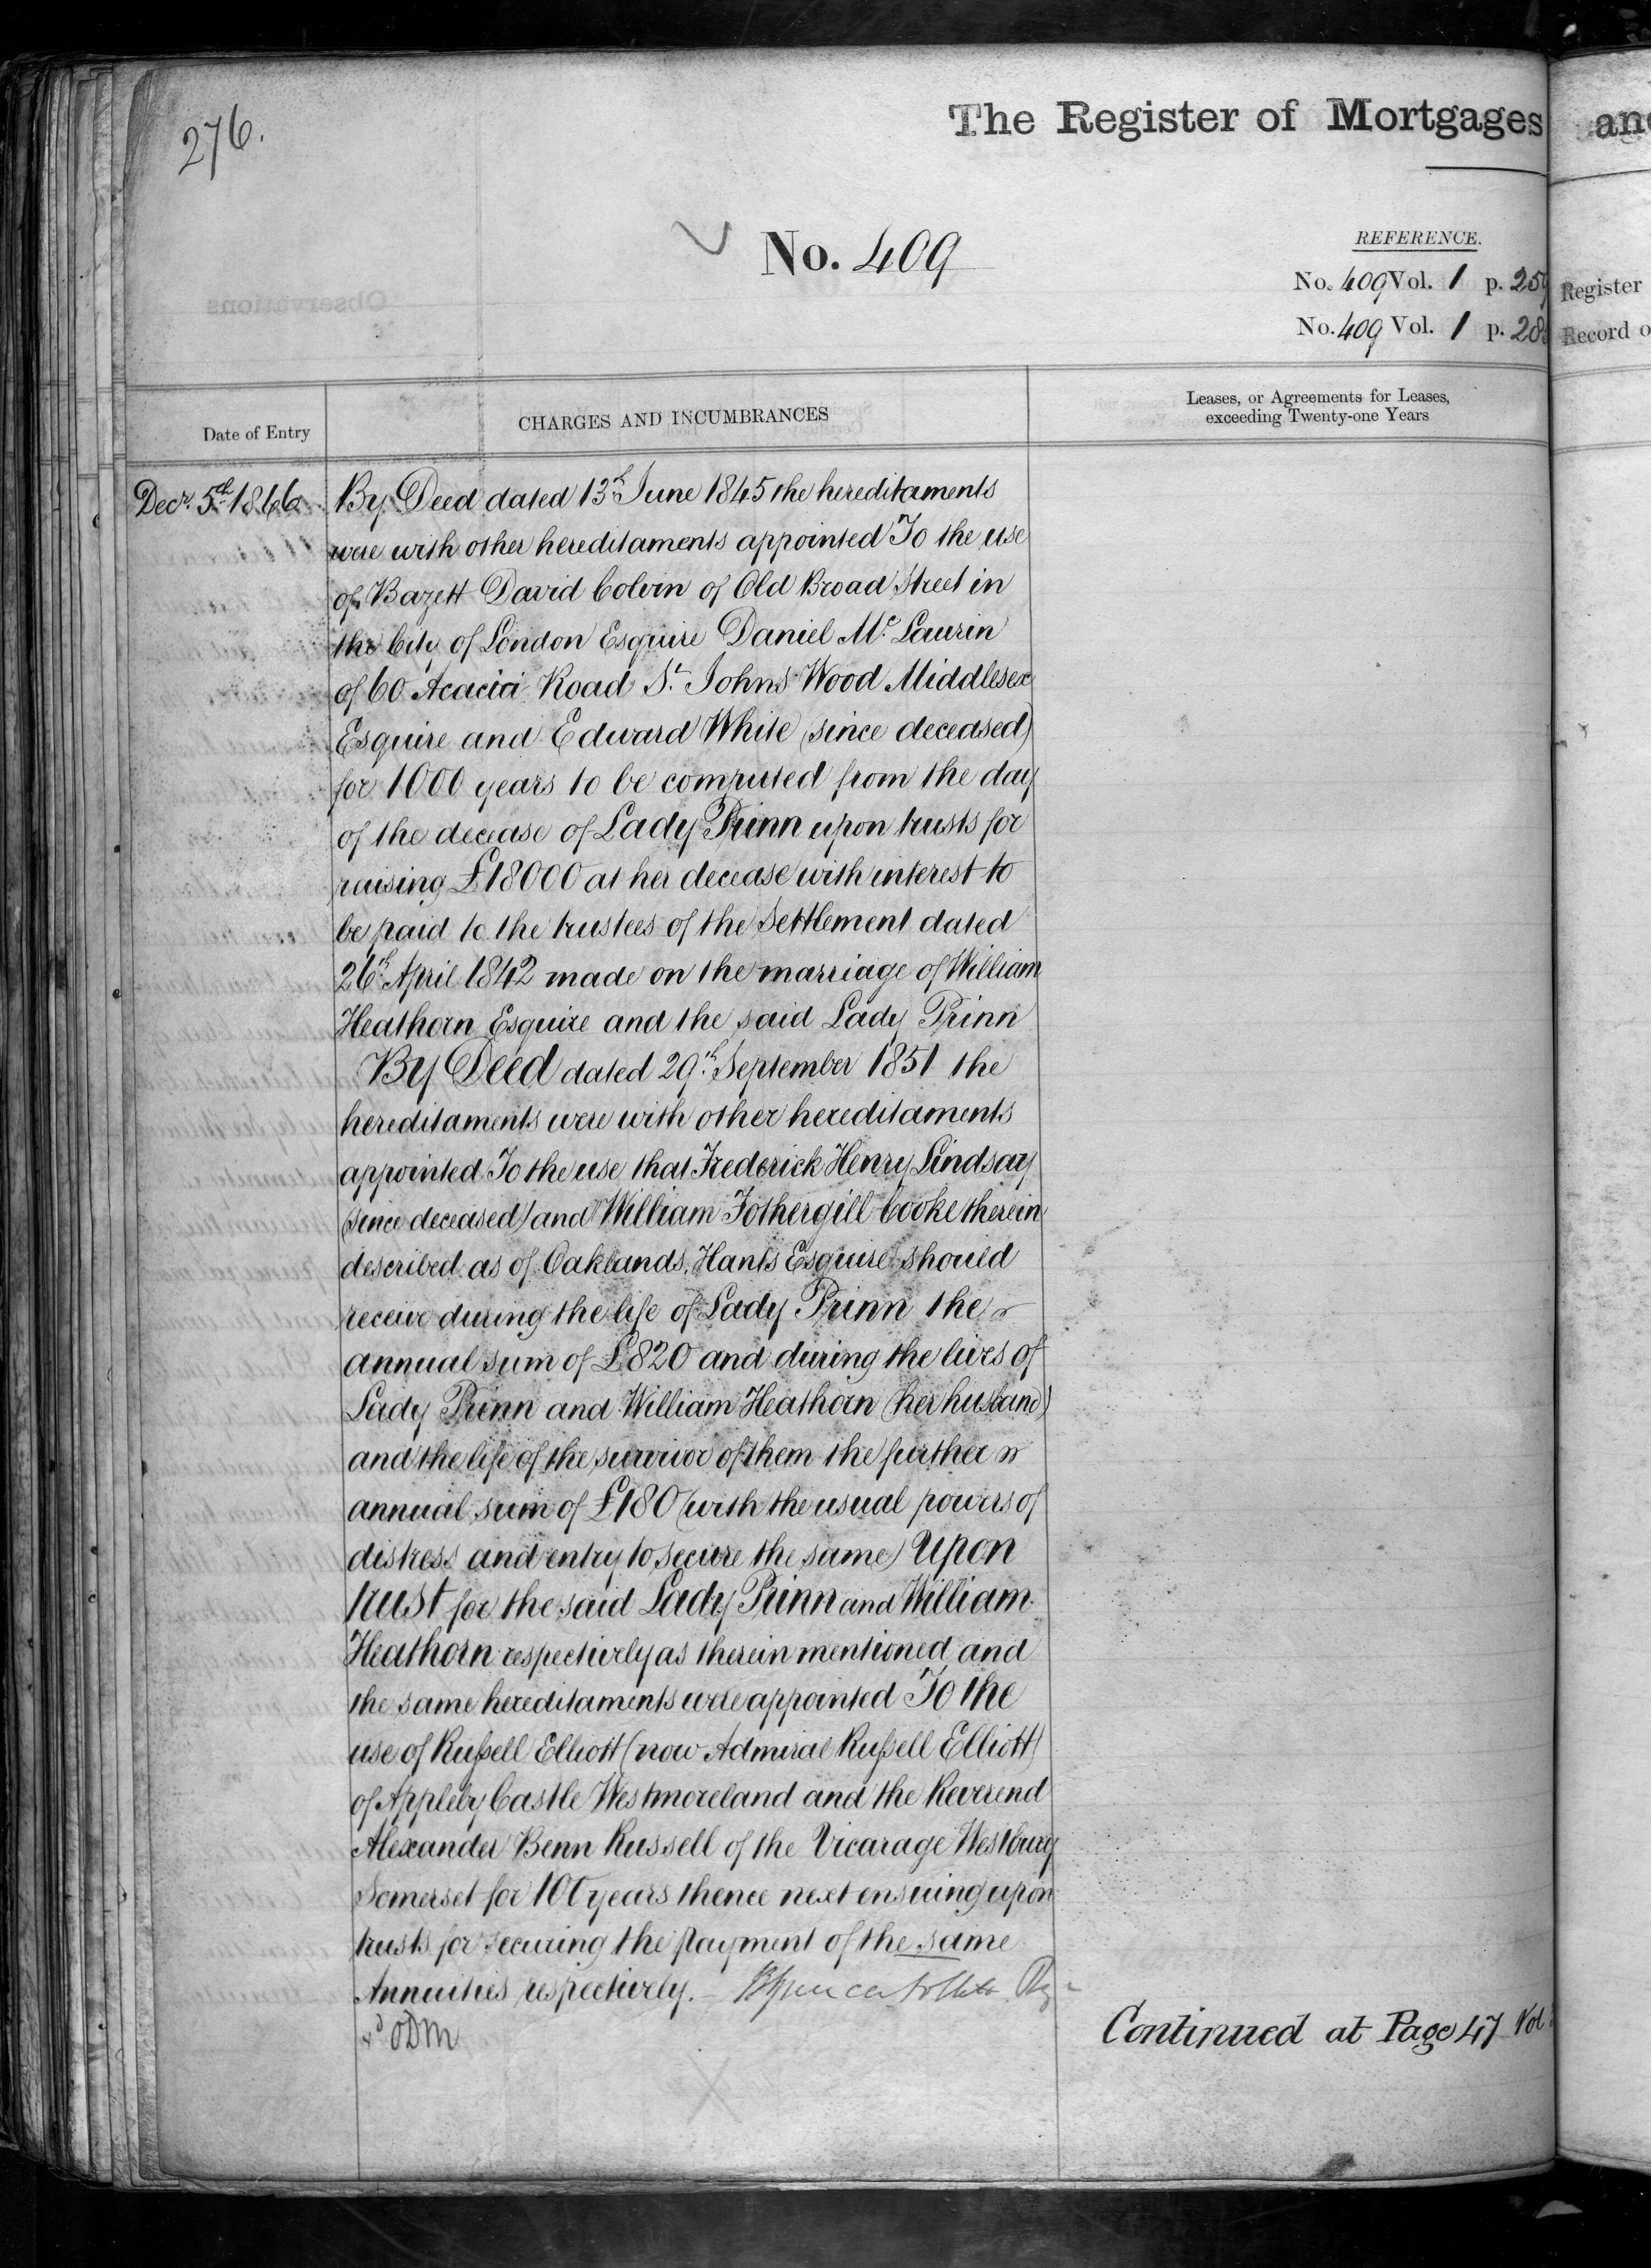 276.
The Register of Mortgages
No. 409
REFERENCE.
No. 409 Vol. 1 p. 25
No. 409 Vol. 1 p. 28
Register
Record o
Date of Entry
CHARGES AND INCUMBRANCES
Leases, or Agreements for Leases,
exceeding Twenty-one Years
Decr. 5th 1866
By Deed dated 13th June 1845 the hereditaments
were with other hereditaments appointed To the use
of Bazett David Colvin of Old Broad Street in
the City of London Esquire Daniel Mc Laurin
of 60 Acacia Road St. Johns Wood Middlesex
Esquire and Edward White (since deceased)
for 1000 years to be computed from the day
of the decease of Lady Prinn upon trusts for
raising £18000 at her decease with interest to
be paid to the trustees of the Settlement dated
26th April 1842 made on the marriage of William
Heathorn Esquire and the said Lady Prinn
By Deed dated 29th September 1851 the
hereditaments were with other hereditaments
appointed To the use that Frederick Henry Lindsay
(since deceased) and William Fothergill Cooke therein
described as of Oaklands, Hants Esquire should
receive during the life of Lady Prinn the
annual sum of £820 and during the lives of
Lady Prinn and William Heathorn (her husband)
and the life of the survivor of them the further
annual sum of £180 (with the usual powers of
distress and entry to secure the same) Upon
trust for the said Lady Prinn and William
Heathorn respectively as therein mentioned and
the same hereditaments were appointed To the
use of Russell Elliott (now Admiral Russell Elliott)
of Appleby Castle Westmoreland and the Reverend
Alexander Benn Russell of the Vicarage Westbury
Somerset for 100 years thence next ensuing upon
trusts for securing the payment of the same
Annuities respectively.
ODM
Continued at Page 47 Vol